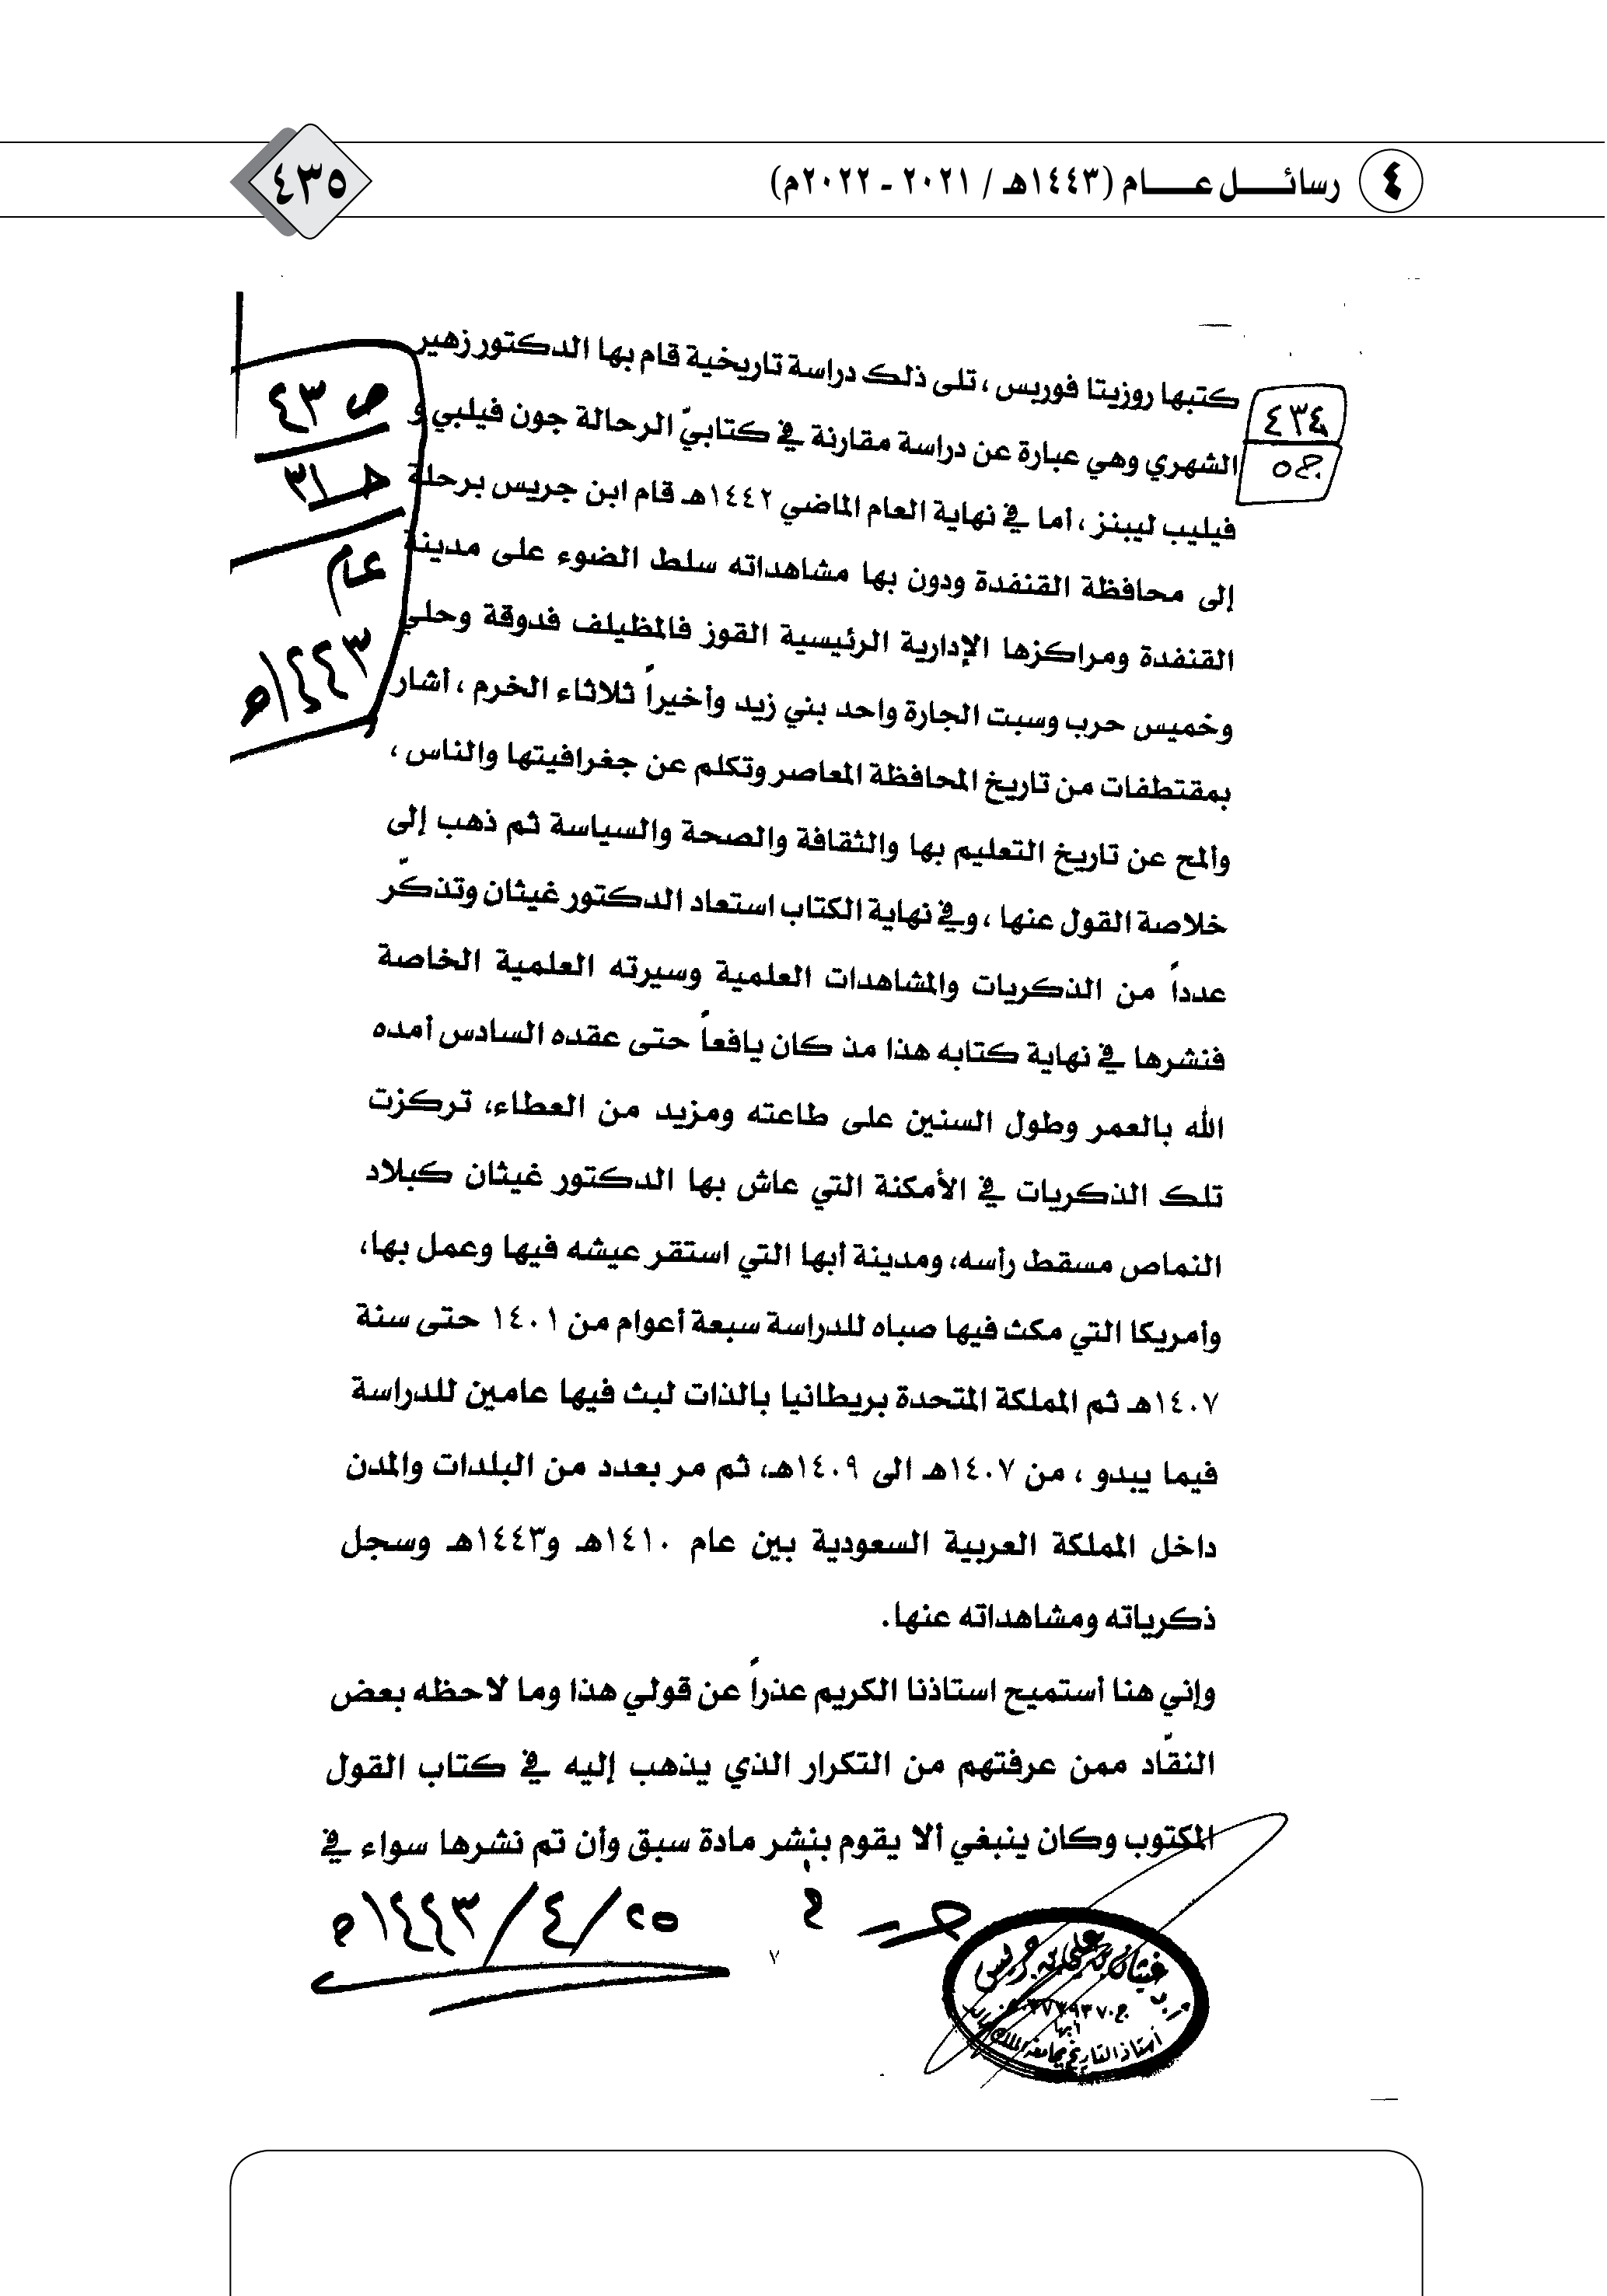 ٤ رسائل عام (١٤٤٣هـ / ٢٠٢١ - ٢٠٢٢م)
٤٣٥
٤٣٤
ص ٤٣
عام
١٤٤٣هـ
كتبها روزيتا فوربس ، تلى ذلك دراسة تاريخية قام بها الدكتور زهير
الشهري وهي عبارة عن دراسة مقارنة في كتابيّ الرحالة جون فيلبي و
فيليب ليبنز ، أما في نهاية العام الماضي ١٤٤٢هـ قام ابن جريس برحلة
إلى محافظة القنفدة ودون بها مشاهداته سلط الضوء على مدينة
القنفدة ومراكزها الإدارية الرئيسية القوز فالمظيلف فدوقة وحلي
وخميس حرب وسبت الجارة واحد بني زيد وأخيراً ثلاثاء الخرم ، أشار
بمقتطفات من تاريخ المحافظة المعاصر وتكلم عن جغرافيتها والناس ،
وألمح عن تاريخ التعليم بها والثقافة والصحة والسياسة ثم ذهب إلى
خلاصة القول عنها ، وفي نهاية الكتاب استعاد الدكتور غيثان وتذكّر
عدداً من الذكريات والمشاهدات العلمية وسيرته العلمية الخاصة
فنشرها في نهاية كتابه هذا مذ كان يافعاً حتى عقده السادس أمده
الله بالعمر وطول السنين على طاعته ومزيد من العطاء، تركزت
تلك الذكريات في الأمكنة التي عاش بها الدكتور غيثان كبلاد
النماص مسقط رأسه، ومدينة أبها التي استقر عيشه فيها وعمل بها،
وأمريكا التي مكث فيها صباه للدراسة سبعة أعوام من ١٤٠١ حتى سنة
١٤٠٧هـ ثم المملكة المتحدة بريطانيا بالذات لبث فيها عامين للدراسة
فيما يبدو ، من ١٤٠٧هـ الى ١٤٠٩هـ، ثم مر بعدد من البلدات والمدن
داخل المملكة العربية السعودية بين عام ١٤١٠هـ و١٤٤٣هـ وسجل
ذكرياته ومشاهداته عنها.
وإني هنا أستميح استاذنا الكريم عذراً عن قولي هذا وما لاحظه بعض
النقّاد ممن عرفتهم من التكرار الذي يذهب إليه في كتاب القول
المكتوب وكان ينبغي ألا يقوم بنشر مادة سبق وأن تم نشرها سواء في
٢٥/٤/١٤٤٣هـ
٧
غيثان بن علي بن جريس
أبها
أستاذ التاريخ بجامعة الملك خالد